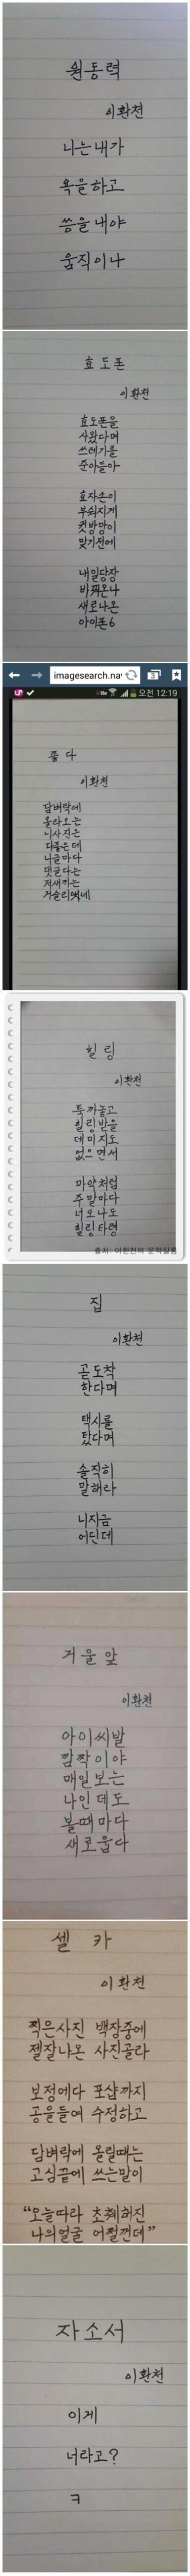 원동력
이환천
니는내가
욕을하고
쓩을내야
움직이나
효도폰
이환천
효도폰을
사왔다며
쓰레기를
준아들아
효자손이
부숴지게
귓방망이
맞기전에
내일당장
바꿔온나
새로나온
아이폰6
imagesearch.nav
3
오전 12:19
좋다
이환천
담벼락에
올라오는
니사진은
다좋은데
니글마다
댓글다는
저새끼는
거슬리겠네
힐링
이환천
툭까놓고
힐링받을
데미지도
없으면서
마약처럼
주말마다
너도나도
힐링타령
출처: 이환천의 문학살롱
집
이환천
곧도착
한다며
택시를
탔다며
솔직히
말해라
니지금
어딘데
거울앞
이환천
아이씨발
깜짝이야
매일보는
나인데도
볼때마다
새로웁다
셀카
이환천
찍은사진 백장중에
젤잘나온 사진골라
보정에다 포샵까지
공을들여 수정하고
담벼락에 올릴때는
고심끝에 쓰는말이
"오늘따라 초췌해진
나의얼굴 어쩔껀데"
자소서
이환천
이게
너라고?
ㅋ